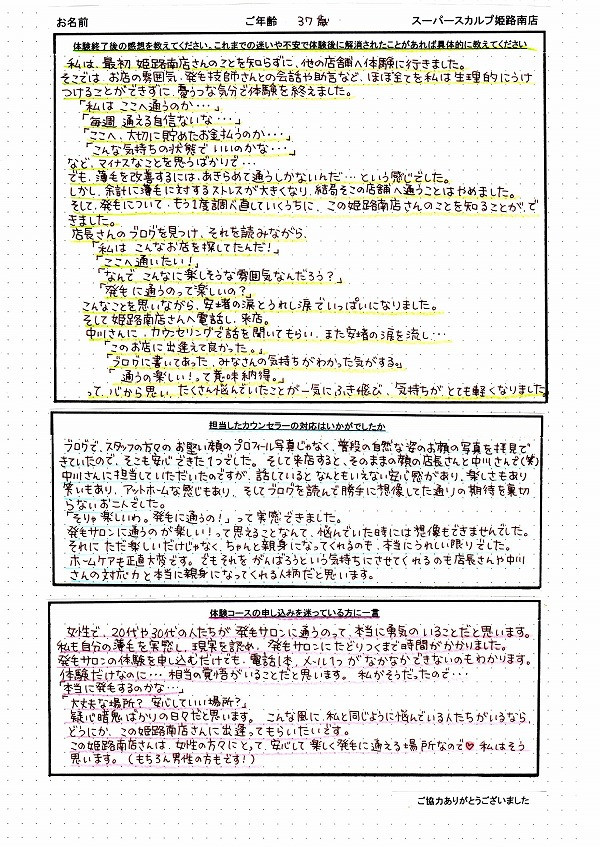 お名前 ご年齢 37歳 スーパースカルプ姫路南店
体験終了後の感想を教えてください。これまでの迷いや不安で体験後に解消されたことがあれば具体的に教えてください
私は、最初 姫路南店さんのことを知らずに、他の店舗へ体験に行きました。
そこでは、お店の雰囲気、発毛技師さんとの会話や助言など、ほぼ全てを私は生理的にうけ
つけることができずに、憂うつな気分で体験を終えました。
「私は ここへ通うのか・・・」
「毎週 通える自信ないな・・・」
「ここへ、大切に貯めたお金払うのか・・・」
「こんな気持ちの状態で いいのかな・・・」
など、マイナスなことを思うばかりで・・・
でも、薄毛を改善するには、あきらめて通うしかないんだ…という感じでした。
しかし、余計に薄毛に対するストレスが大きくなり、結局そこの店舗へ通うことはやめました。
そして、発毛について、もう1度調べ直していくうちに、この姫路南店さんのことを知ることができ
きました。
店長さんのブログを見つけ、それを読みながら、
「私は こんなお店を探してたんだ!」
「ここへ通いたい!」
「なんで こんなに楽しそうな雰囲気なんだろう?」
「発毛に通うのって楽しいの?」
こんなことを思いながら、安堵の涙とうれし涙でいっぱいになりました。
そして姫路南店さんへ電話し、来店。
中川さんに、カウンセリングで話を聞いてもらい、また安堵の涙を流し・・・
「このお店に出逢えて良かった。」
「ブログに書いてあった、みなさんの気持ちがわかった気がする。」
「通うの楽しい!って意味納得。」
って、心から思い、たくさん悩んでいたことが一気にふき飛び、気持ちが とても軽くなりました。
担当したカウンセラーの対応はいかがでしたか
ブログで、スタッフの方々の お堅い顔のプロフィール写真じゃなく、普段の自然な姿のお顔の写真を拝見で
きていたので、そこも安心できた1つでした。そして来店すると、そのままの顔の店長さんと中川さんで(笑)
中川さんに担当していただいたのですが、話していると なんともいえない安心感があり、楽しさもあり
笑いもあり、アットホームな感じもあり、そしてブログを読んで勝手に想像してた通りの期待を裏切
らないお二人でした。
「そりゃ楽しいわ。発毛に通うの!」って実感できました。
発毛サロンに通うのが楽しい!って思えることなんて、悩んでいた時には想像もできませんでした。
それに ただ楽しいだけじゃなく、ちゃんと親身になってくれるのも、本当にうれしい限りでした。
ホームケアも正直大変です。でもそれを がんばろうという気持ちにさせてくれるのも店長さんや中川
さんの対応力と本当に親身になってくれる人柄だと思います。
体験コースの申し込みを迷っている方に一言
女性で、20代や30代の人たちが 発毛サロンに通うのって、本当に勇気のいることだと思います。
私も自分の薄毛を実感し、現実を認め、発毛サロンにたどりつくまで時間がかかりました。
発毛サロンの体験を申し込むだけでも、電話1本、メール1つがなかなかできないのもわかります。
体験だけなのに・・・相当の覚悟がいることだと思います。私がそうだったので・・・
「本当に発毛するのかな…」
「大丈夫な場所?安心していい場所?」
疑心暗鬼ばかりの日々だと思います。こんな風に、私と同じように悩んでいる人たちがいるなら、
どうにか、この姫路南店さんに出逢ってもらいたいです。
この姫路南店さんは、女性の方々にとって、安心して 楽しく発毛に通える場所なので♥ 私はそう
思います。(もちろん男性の方もです!)
ご協力ありがとうございました